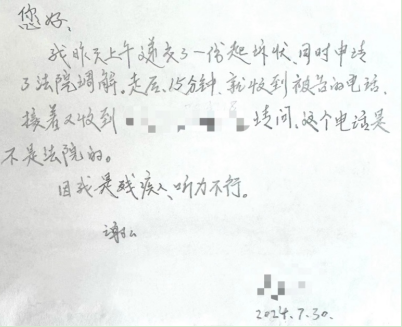 您好:
我昨天上午递交了一份起诉状、同时申请
了法院调解。走后、15分钟、就收到被告的电话、
接着又收到 请问、这个电话是
不是法院的。
因我是残疾人、听力不行。
谢公
2024.7.30.